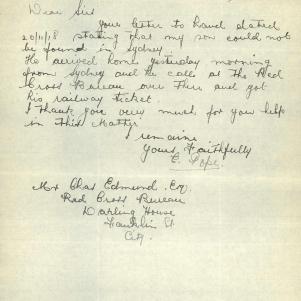 Dear Sir
Your letter to hand dated
20/11/18 stating that my son could not
be found in Sydney.
He arrived home yesterday morning
from Sydney and he calls at the Red
Cross Bureau over there and got
his railway ticket.
I thank you very much for you help
in this matter
I remain
Yours Faithfully
E. Pope.
Mr Chas Edmund. Esq.
Red Cross Bureau
Darling House
Franklin St
City.